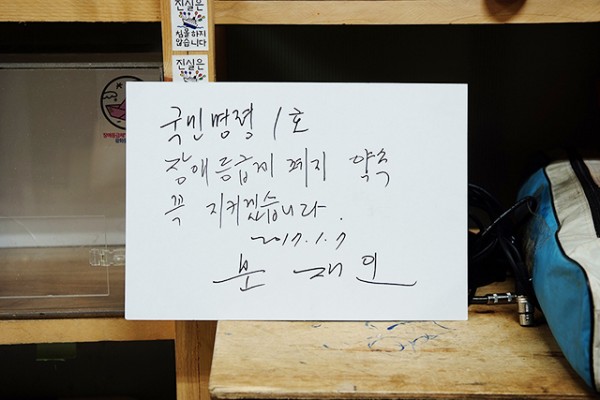 진실은
침몰하지
않습니다
진실은
국민명령 1호
장애등급제 폐지 약속
꼭 지키겠습니다.
2017.1.7
문재인